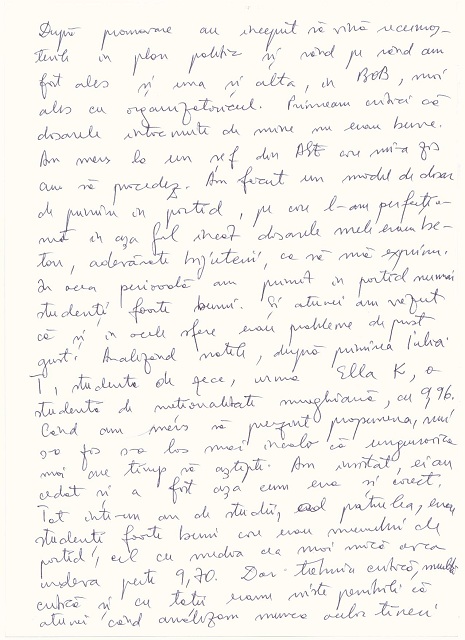 După promovare au început să vină recunoș-
terile in plan politic și rând pe rând am
fost ales și una și alta, in BOB, mai
ales cu organizatoricul. Primeam critici că
dosarele întocmite de mine nu erau bune.
Am mers la un șef din ASE care mi-a zis
cum să procedez. Am făcut un model de dosar
de primire in partid, pe care l-am perfectio-
nat in așa fel încât dosarele mele erau be-
ton, adevărate bijuterii, ca să mă exprim.
In acea perioadă am primit in partid numai
studenți foarte buni. Și atunci am văzut
că și in acele sfere erau probleme de prost
gust. Analizând notele, după primirea Iulia
T, studentă de zece, urma Ella K, o
studentă de nationalitate maghiară, cu 9,96.
Când am mers să prezint propunerea, mi
s-a zis s-o las mai incolo că unguroaica
mai are timp să aștepte. Am insistat, ei au
cedat și a fost așa cum era și corect.
Tot intr-un an de studii, al patrulea, erau
studenți foarte buni care erau membri de
partid, cel cu media cea mai mică avea
undeva peste 9,70. Dar trebuia critică, multă
critică și cu toții eram niște penibili că
atunci când analizam munca acelor tineri